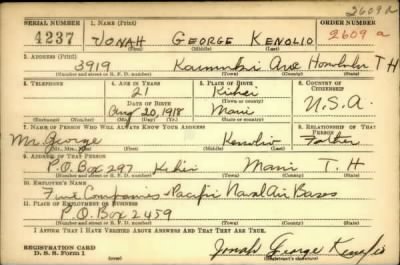 2609 a
SERIAL NUMBER 1. NAME (Print) ORDER NUMBER
4237 JONAH GEORGE KENOLIO 2609 a
(First) (Middle) (Last)
2. ADDRESS (Print)
3919 Ave Honolulu T H
(Number and street or R. F. D. number) (Town) (County) (State)
3. TELEPHONE 4. AGE IN YEARS 5. PLACE OF BIRTH 6. COUNTRY OF CITIZENSHIP
21 Kihei
DATE OF BIRTH (Town or county)
Aug 20, 1918 Maui U.S.A.
(Exchange) (Number) (Mo.) (Day) (Yr.) (State or country)
7. NAME OF PERSON WHO WILL ALWAYS KNOW YOUR ADDRESS 8. RELATIONSHIP OF THAT PERSON
Mr. George Kenolio Father
(Mr., Mrs., Miss) (First) (Middle) (Last)
9. ADDRESS OF THAT PERSON
P.O. Box 297 Kihei Maui T. H
(Number and street or R. F. D. number) (Town) (County) (State)
10. EMPLOYER'S NAME
Five Companies - Pacific Naval Air Bases
11. PLACE OF EMPLOYMENT OR BUSINESS
P.O. Box 2459
(Number and street or R. F. D. number) (Town) (County) (State)
I AFFIRM THAT I HAVE VERIFIED ABOVE ANSWERS AND THAT THEY ARE TRUE.
REGISTRATION CARD
D. S. S. Form 1
Jonah George Kenolio
(Registrant's signature)